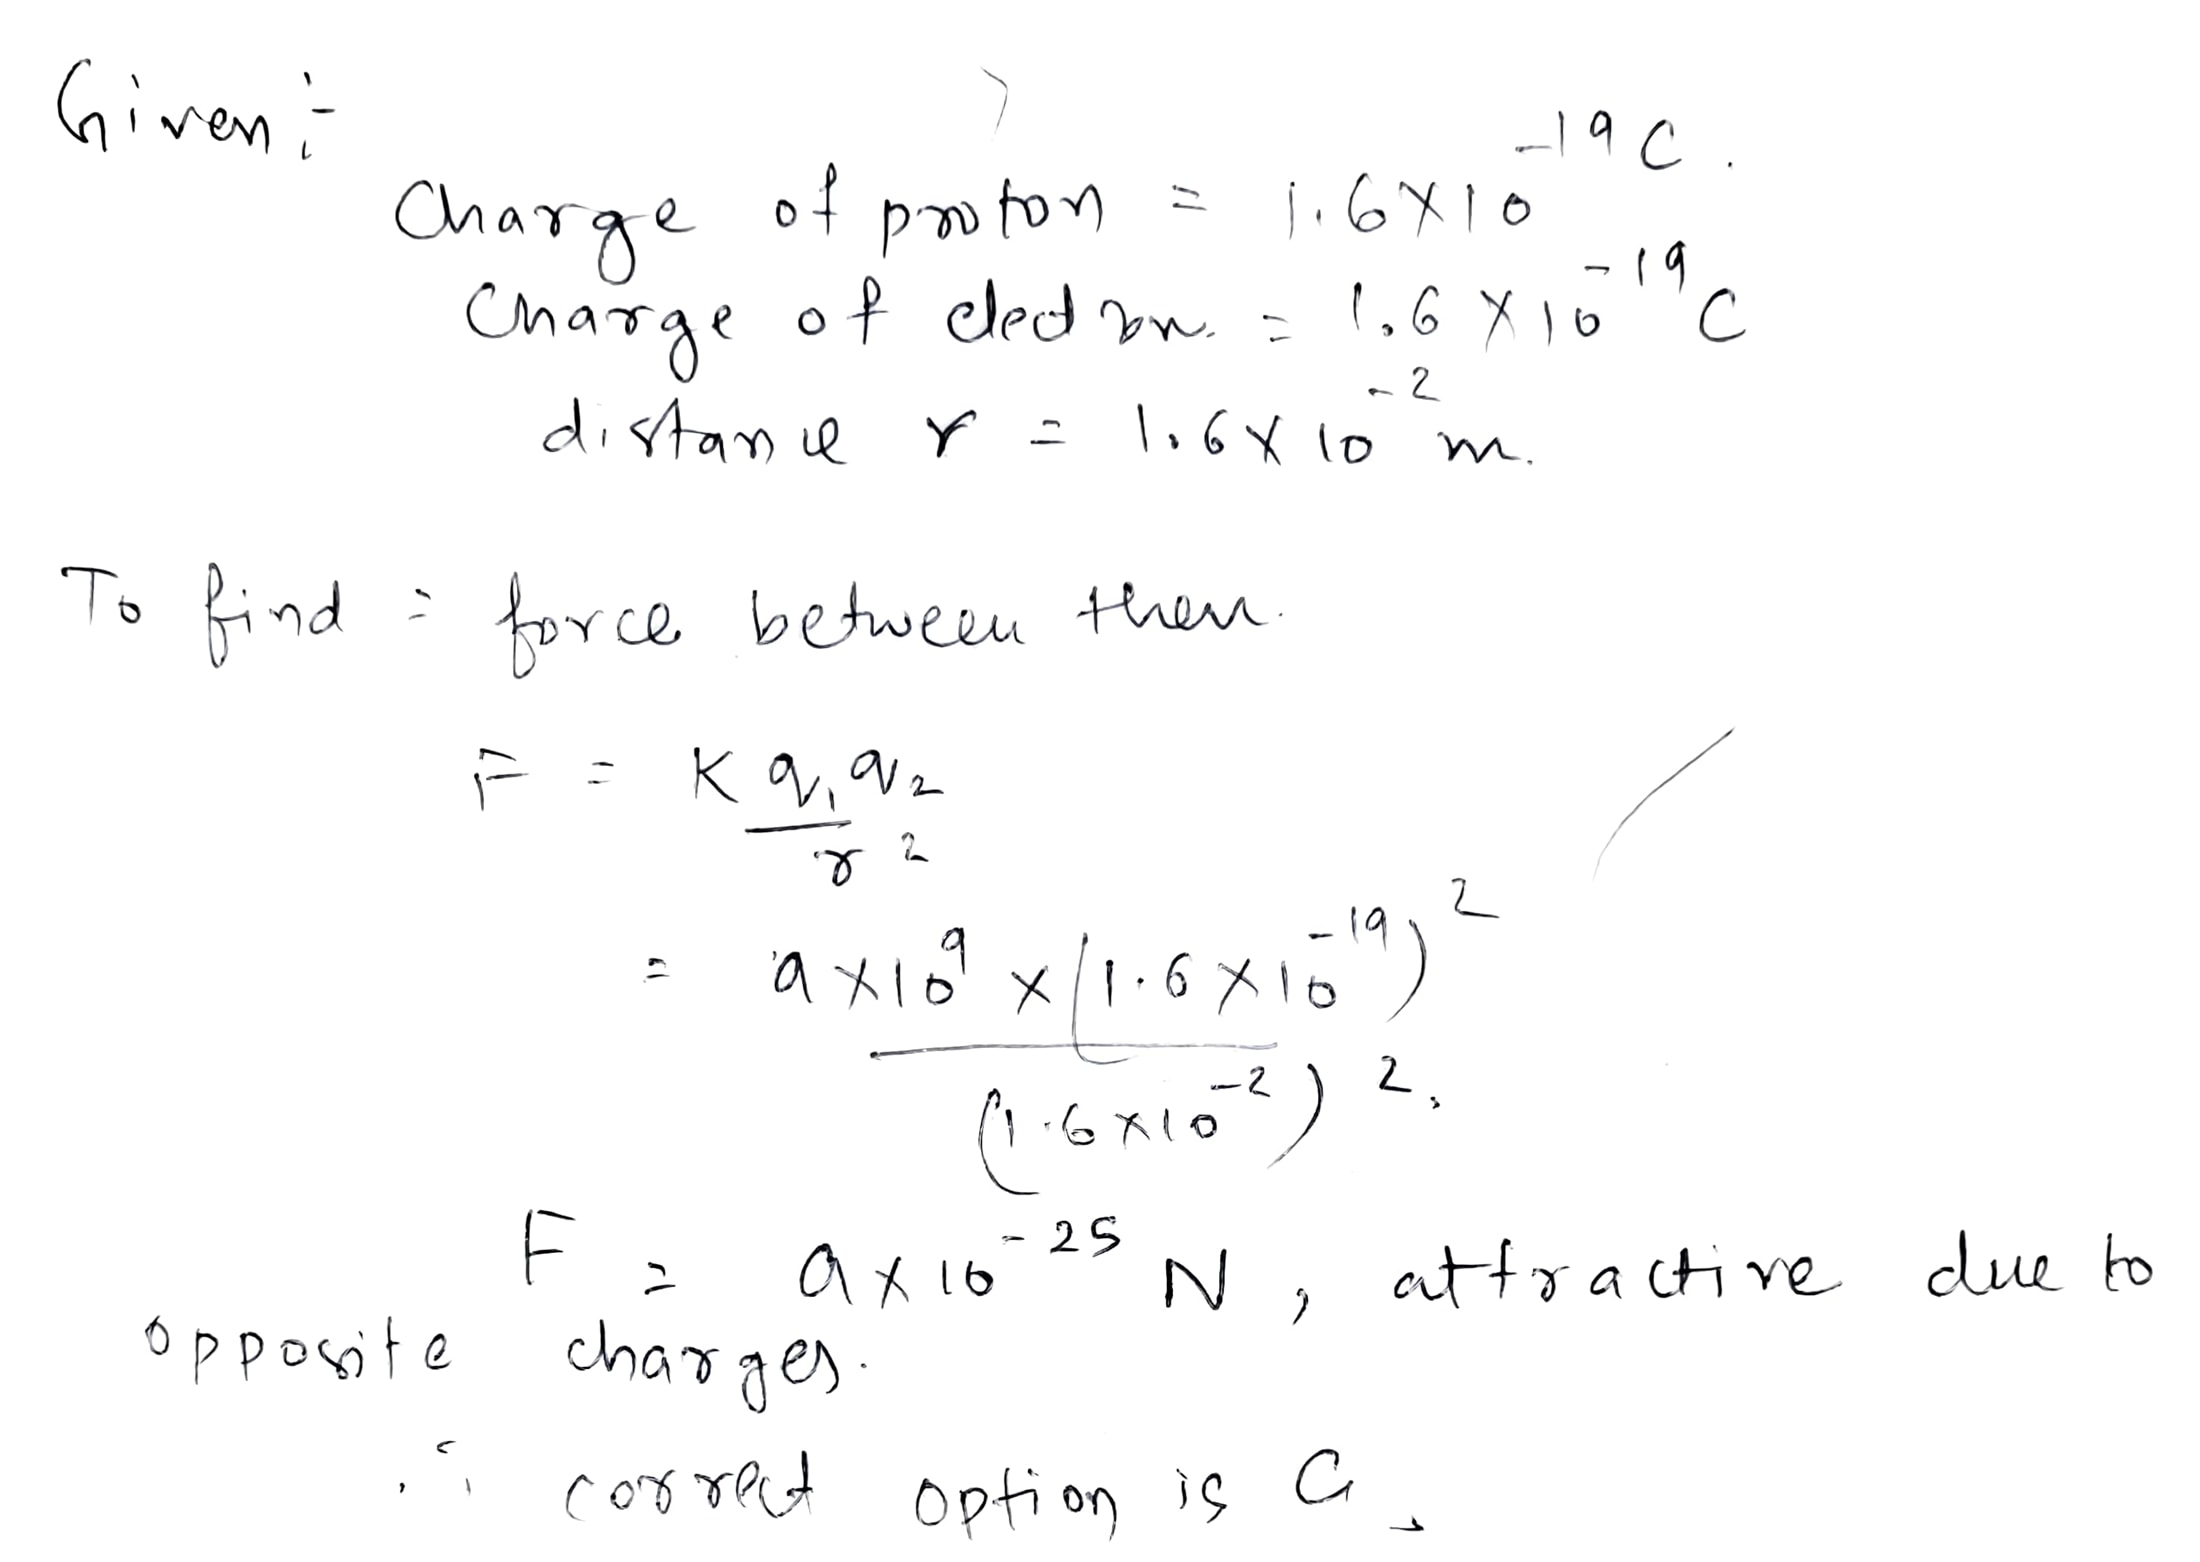 Given :-
Charge of proton = 1.6×10⁻¹⁹ C.
Charge of electron. = 1.6 ×10⁻¹⁹ C
distance r = 1.6×10⁻² m.
To find : force between them.
F = K q₁q₂
r²
= 9×10⁹ × (1.6×10⁻¹⁹)²
(1.6×10⁻²)²
F = 9×10⁻²⁵ N, attractive due to
opposite charges.
∴ correct option is C